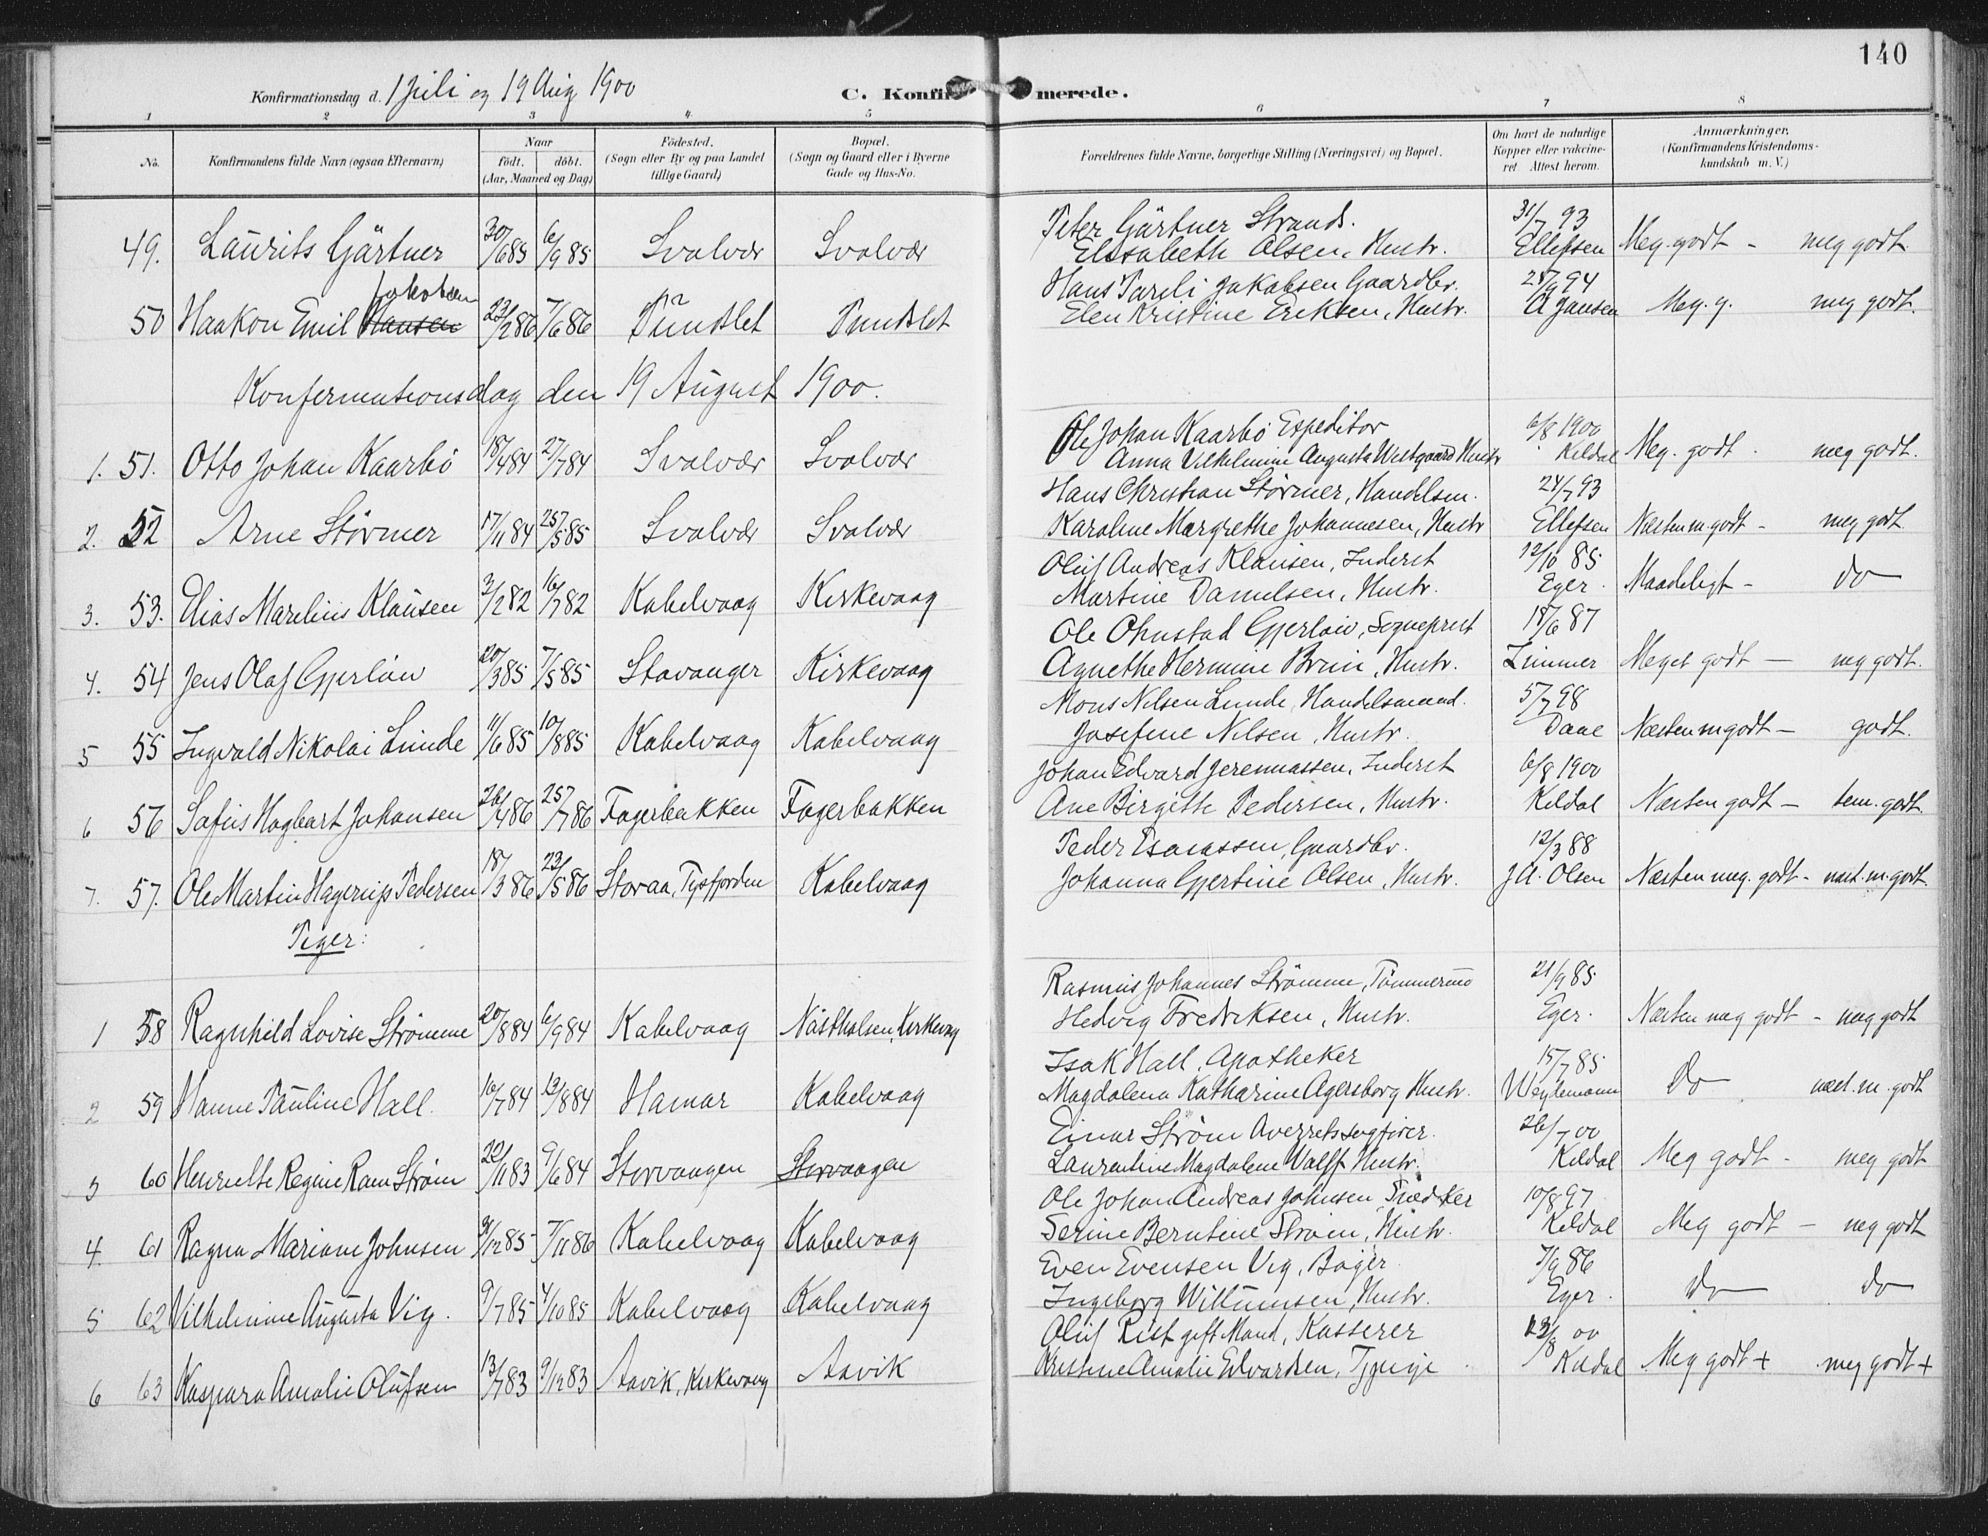 140
Konfirmationsdag d. 1 Juli og 19 Aug 1900
C. Konfirmerede.
1 2 3 4 5 6 7 8
No. Konfirmandens fulde Navn (ogsaa Efternavn) Naar födt. döbt. (Aar, Maaned og Dag) Födested. (Sogn eller By og paa Landet tillige Gaard) Bopæl. (Sogn og Gaard eller i Byerne Gade og Hus-No. Forældrenes fulde Navne, borgerlige Stilling (Næringsvei) og Bopæl. Om havt de naturlige Kopper eller vaccineret Attest herom. Anmærkninger. (Konfirmandens Kristendomskundskab m. V.)
Peter Gärtner Strands. 31/7 93
49. Laurits Gärtner 30/6 85 6/9 85 Svolvær Svolvær Elisabeth Olsen, Hustr. Ellefsen Meg. godt - meg godt.
Jakobsen Hans Parili Jakobsen Gaardbr. 28/9 94
50 Haakon Emil Hansen 23/2 86 7/6 86 Pundslet Pundslet Elen Kristine Eriksen, Hustr. A Jansen Meg. g. meg godt.
Konfermationsdag den 19 August 1900.
Ole Johan Kaarbö Expeditör 6/8 1900
1. 51. Otto Johan Kaarbö 18/4 84 27/7 84 Svolvær Svolvær Anna Vilhelmine Augusta Westgaard Hustr Kildal Meg. godt. meg godt.
Hans Christian Störmer, Handelsm. 24/7 93
2. 52 Arne Störmer 17/11 84 25/5 85 Svolvær Svolvær Karoline Margrethe Johannesen, Hustr Ellefsen Næsten m. godt - meg godt
Oluf Andreas Klausen, Inderst 12/10 85
3. 53. Elias Marelius Klausen 2/2 82 16/7 82 Kabelvaag Kirkevaag Martine Danielsen, Hustr. Eger. Maadeligt - Do
Ole Ohnstad Gjerlöw, Sogneprest 18/6 87
4. 54 Jens Olaf Gjerlöw 20/3 85 7/5 85 Stavanger Kirkevaag Agnethe Hermine Brun, Hustr. Zimmer Meget godt - meg godt.
Mons Nilsen Lunde, Handelsmand. 5/7 98
5 55 Ingvald Nikolai Lunde 11/6 85 10/8 85 Kabelvaag Kabelvaag Josefine Nilsen, Hustr. Daae Næsten m godt - godt.
Johan Edvard Jeremiassen, Inderst 6/8 1900
6 56 Sofus Hagbart Johansen 26/4 86 25/7 86 Fagerbakken Fagerbakken Ane Birgitte Pedersen, Hustr. Kildal Næsten godt - tem. godt.
Peder Esaiassen, Gaardbr. 12/3 88
7. 57. Ole Martin Hagerup Pedersen 18/3 86 23/5 86 Storaa, Tysfjorden Kabelvaag Johanna Gjertine Olsen, Hustr. J A. Olsen Næsten meg. godt - næst. m. godt.
Piger:
Rasmus Johannes Strömme, Tömmerm 21/9 85
1 58 Ragnhild Lovise Strömme 20/8 84 6/9 84 Kabelvaag Nästhalsen, Kirkevaag Hedvig Fredriksen, Hustr. Eger. Næsten meg godt - meg godt
Isak Hall, Apotheker 15/7 85
2 59 Hanne Pauline Hall. 16/7 84 13/8 84 Hamar Kabelvaag Magdalena Katharine Agersborg Hustr. Do næst. m. godt
Einar Ström Overretssagförer. 26/7 00
3 60 Henriette Regine Ström 22/11 83 9/6 84 Storvaagen Storvaagen Laurentine Magdalene Hustr. Kildal Meg godt - meg godt
Ole Johan Andreas Johnsen, Snedker 10/8 97
4. 61 Ragna Mariane Johnsen 9/12 85 7/11 86 Kabelvaag Kabelvaag Serine Berntine Ström, Hustr. Kildal Meg godt - meg godt
Even Evensen Vig, Bager. 7/9 86
5 62 Vilhelmine Augusta Vig. 9/7 85 4/10 85 Kabelvaag Kabelvaag Ingeborg Willumsen, Hustr. Eger. Do Do
Oluf Rist gift Mand, Kasserer 13/8 00
6 63 Kaspara Amalie Olufsen 13/7 83 9/12 83 Aavik, Kirkevaag Aavik Kristine Amalie Edvardsen, Kildal Meg godt + meg godt +